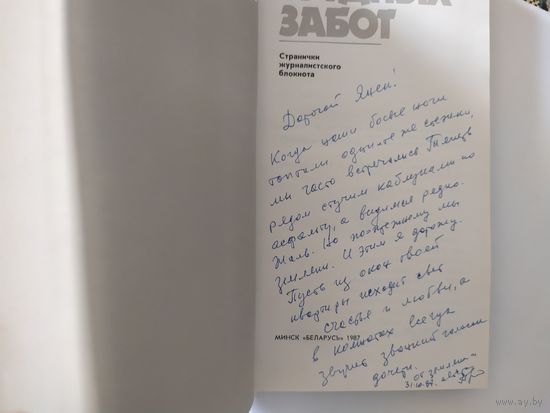 ЗАБОТ
Странички
журналистского
блокнота
Дорогой Янек!
Когда наши босые ноги
топтали одни и те же стежки,
мы часто встречались. Теперь
рядом стучим каблуками по
асфальту, а видимся редко.
Жаль. Но по-прежнему мы
земляки. И этим я дорожу.
Пусть из окон твоей
квартиры исходит свет
счастья и любви, а
МИНСК «БЕЛАРУСЬ» 1987
в комнатах всегда
звучит звонкий голосок
дочери.
от земляка
www.ay.by